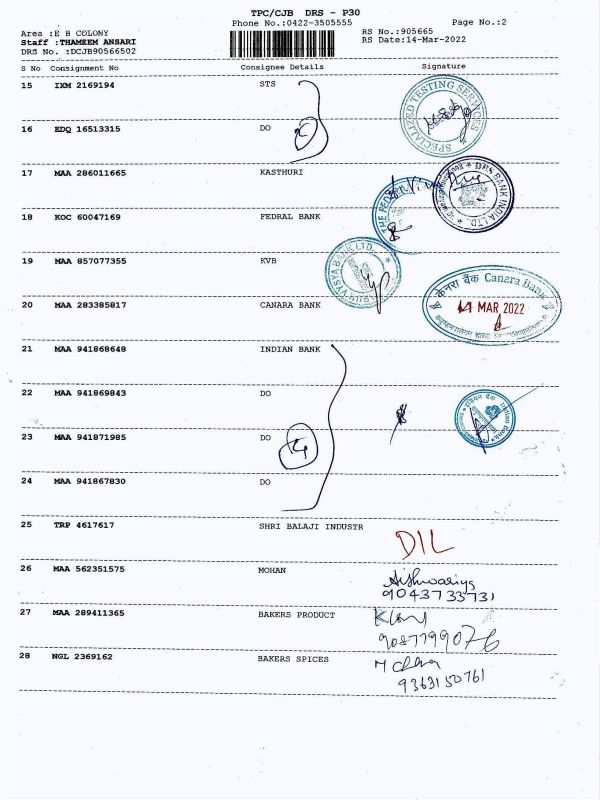 TPC/CJB DRS - P30
Phone No.:0422-3505555 Page No.:2
Area :E B COLONY RS No.:905665
Staff :THAMEEM ANSARI RS Date:14-Mar-2022
DRS No. :DCJB90566502
S No Consignment No Consignee Details Signature
15 IXM 2169194 STS
SPECIALIZED TESTING SERVICES
16 EDQ 16513315 DO
17 MAA 286011665 KASTHURI
DBS BANK INDIA LTD.
THE FEDERAL
18 KOC 60047169 FEDRAL BANK
19 MAA 857077355 KVB
VYSYA BANK LTD.
20 MAA 283385817 CANARA BANK
केनरा बैंक Canara Bank
14 MAR 2022
21 MAA 941868648 INDIAN BANK
22 MAA 941869843 DO
Indian Bank
23 MAA 941871985 DO
24 MAA 941867830 DO
25 TRP 4617617 SHRI BALAJI INDUSTR
DIL
26 MAA 562351575 MOHAN
Aishwariya
9043733731
27 MAA 289411365 BAKERS PRODUCT
9087799076
28 NGL 2369162 BAKERS SPICES
9363150761